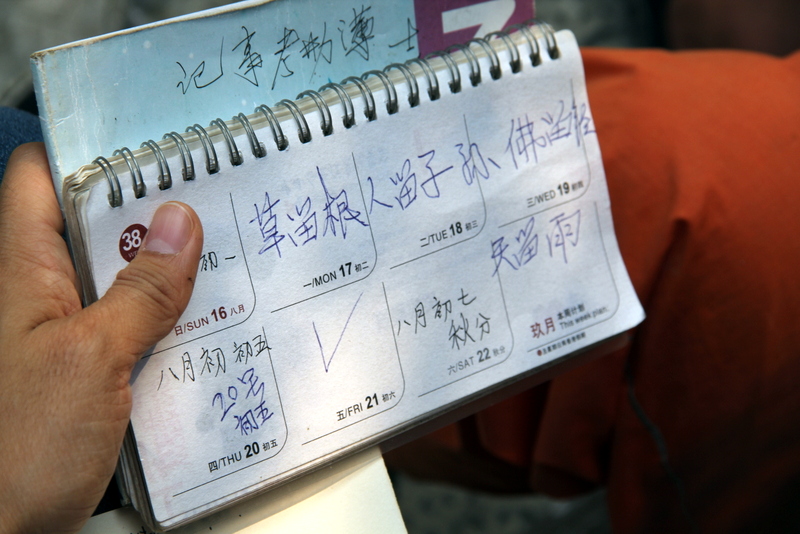 记事考勤薄
38
初一
日/SUN 16 八月
草留根
一/MON 17 初二
人留子孙
二/TUE 18 初三
佛留经
三/WED 19 初四
八月初 初五
20号
初五
四/THU 20 初五
五/FRI 21 初六
八月初七
秋分
六/SAT 22 秋分
天留雨
玖月 本周计划
This week plan: